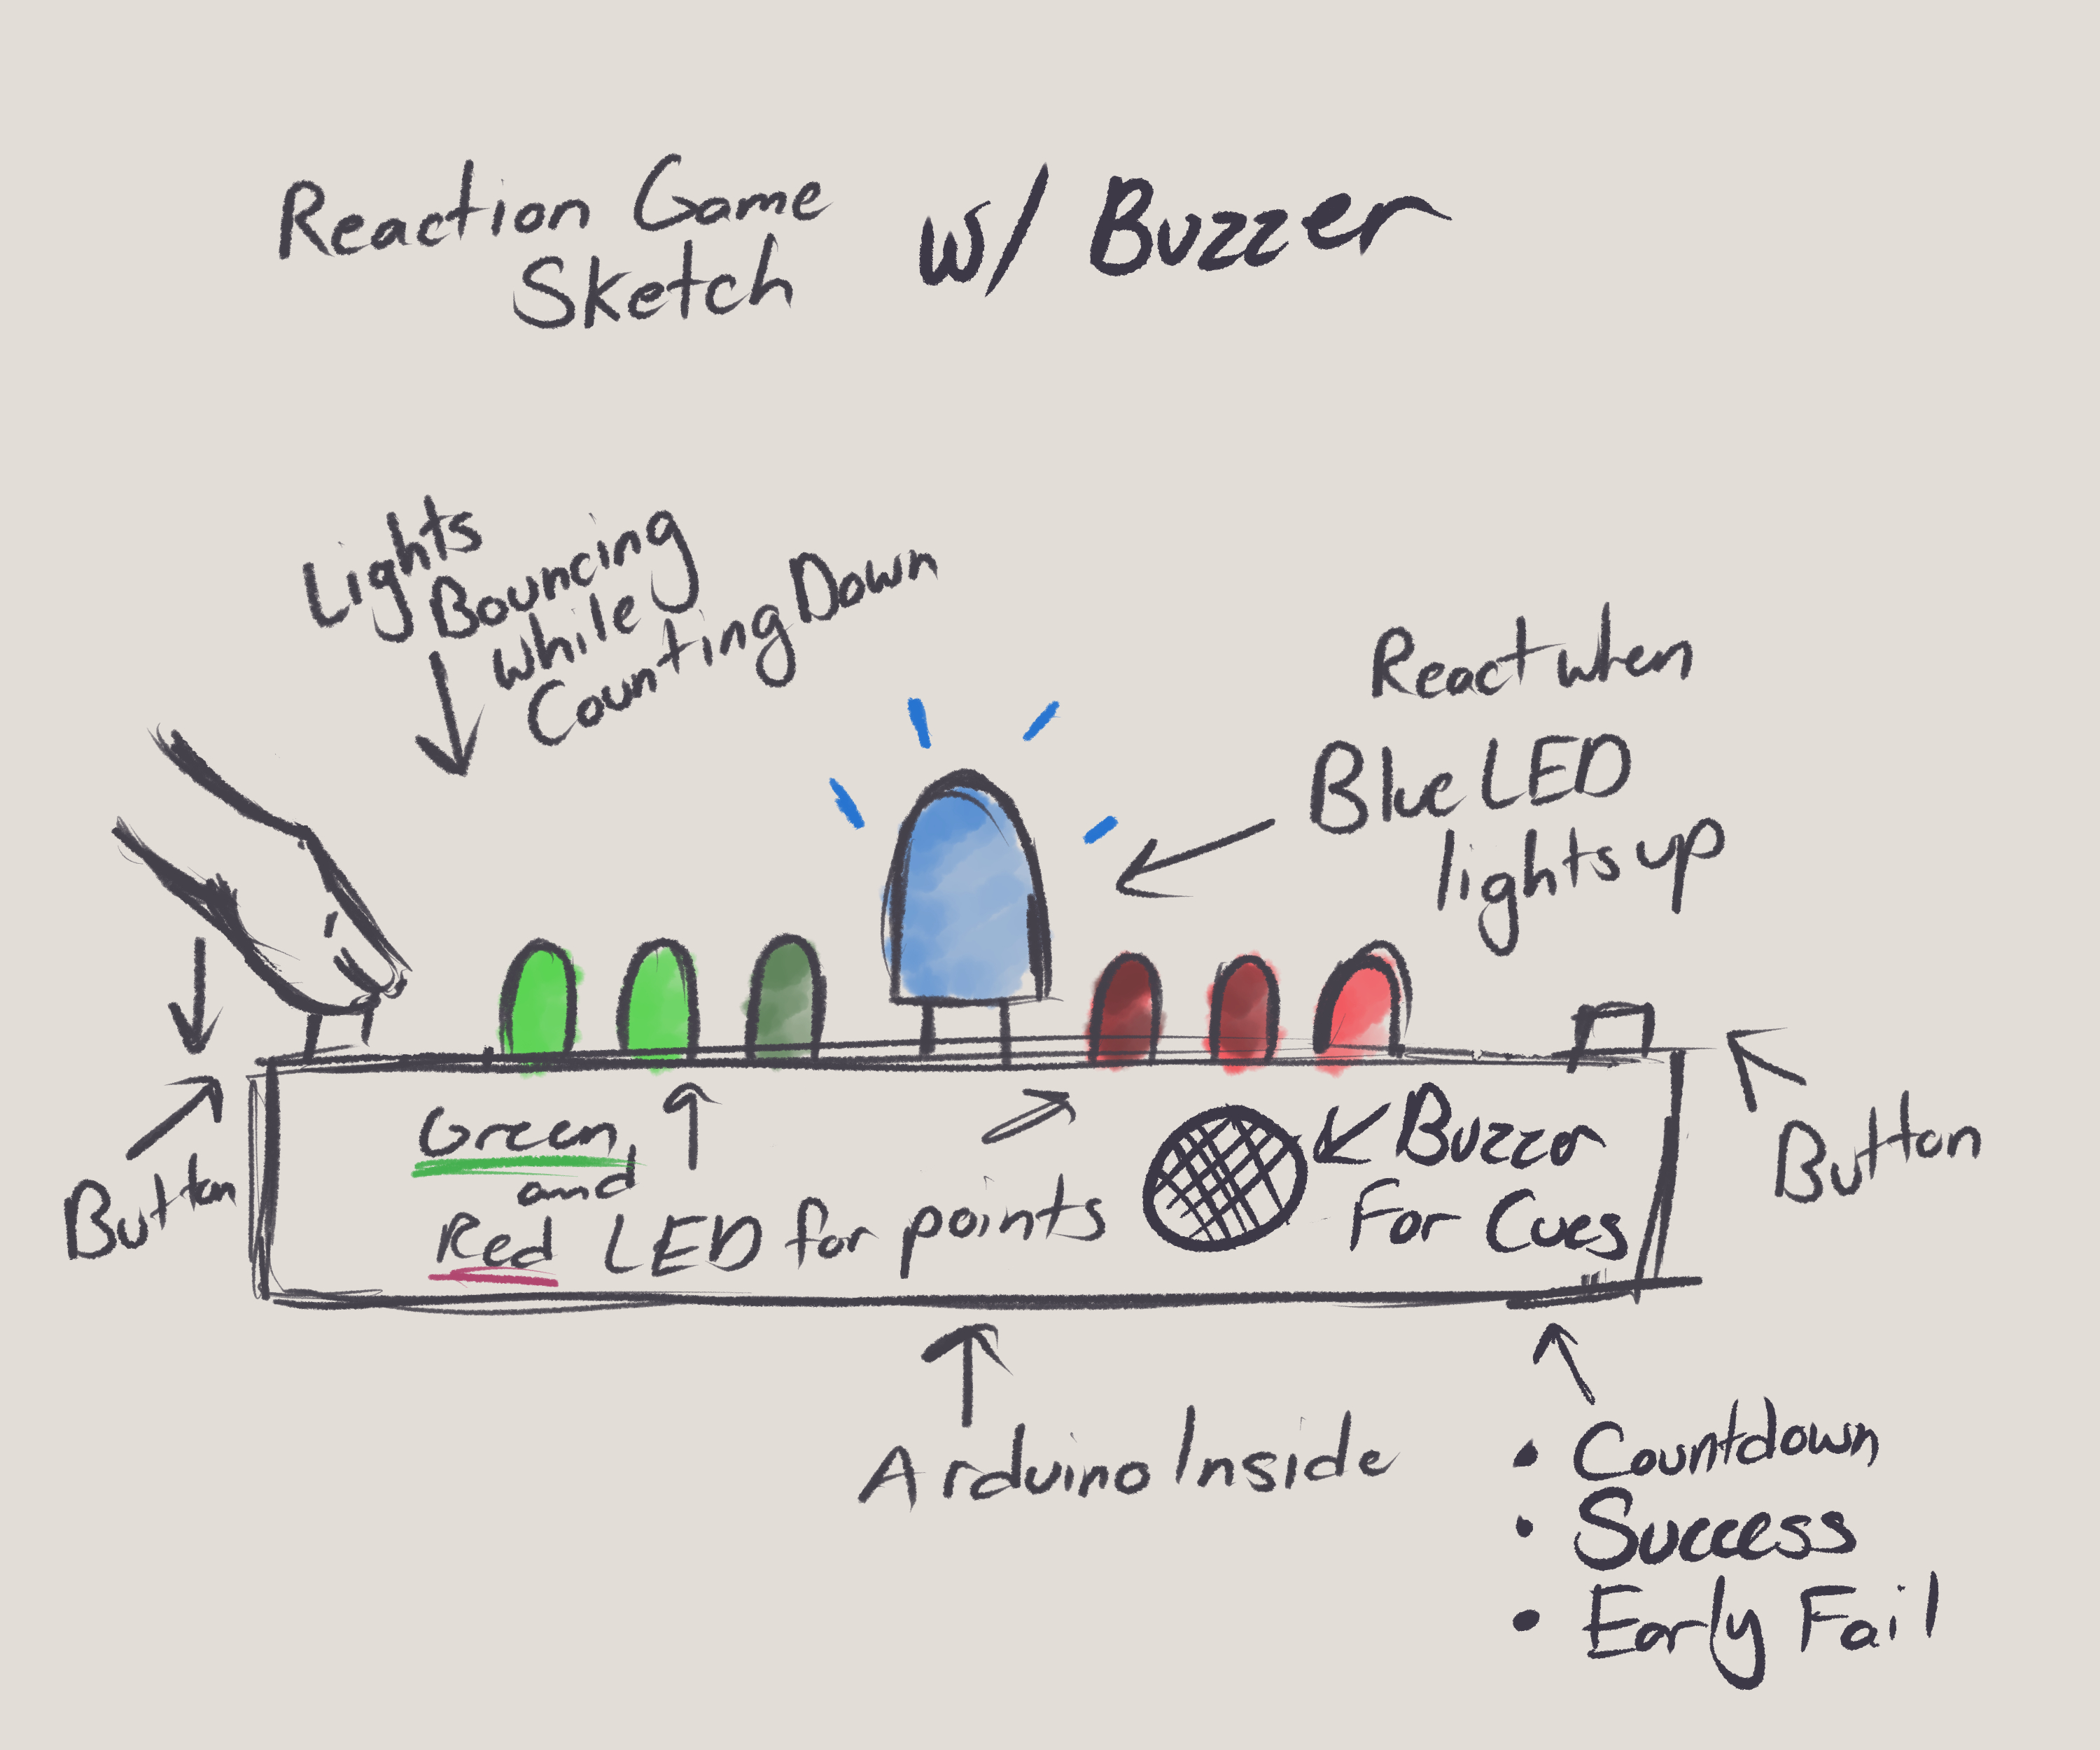 Reaction Game
Sketch
w/ Buzzer
Lights
Bouncing
while
Counting Down
React when
Blue LED
lights up
Button
Green
and
Red LED for points
Buzzer
For Cues
Button
Arduino Inside
• Countdown
• Success
• Early Fail